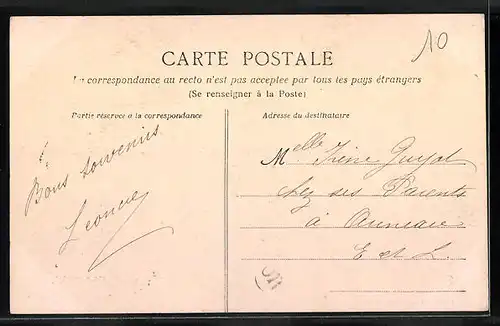 10
CARTE POSTALE
La correspondance au recto n'est pas acceptée par tous les pays étrangers
(Se renseigner à la Poste)
Partie réservée à la correspondance
Adresse du destinataire
Bons souvenirs
Léonce
Melle Irène Guyot
chez ses Parents
à
E et L.